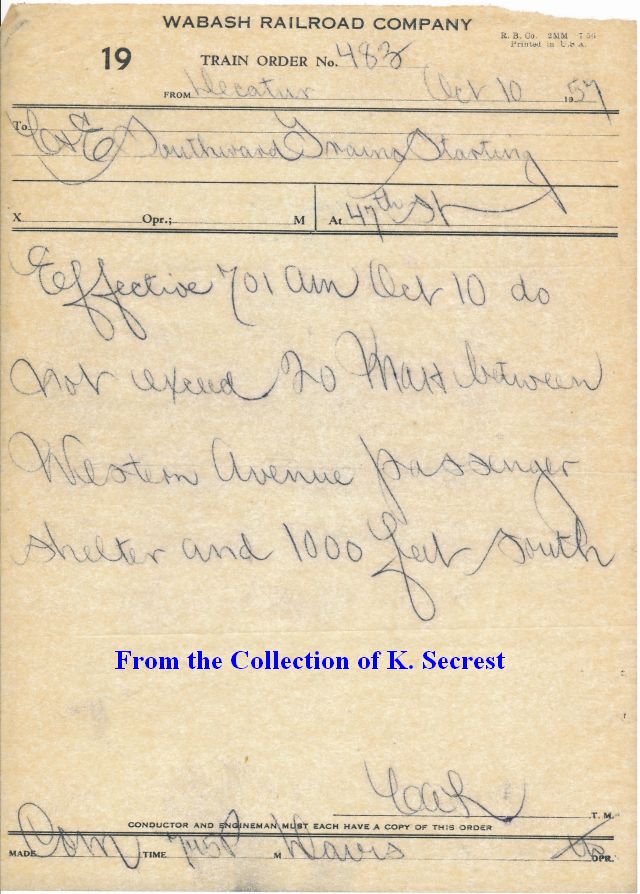 WABASH RAILROAD COMPANY
R. B. Co. 2MM 7 56
Printed in U.S.A.
19
TRAIN ORDER No. 483
FROM Decatur Oct 10 1957
To C&E Southward Trains Starting
X Opr.; M At 47th St
Effective 701 am Oct 10 do
not exceed 20 MPH between
Western Avenue passenger
shelter and 1000 feet south
From the Collection of K. Secrest
T. M.
CONDUCTOR AND ENGINEMAN MUST EACH HAVE A COPY OF THIS ORDER
MADE Com TIME 745P M Davis OPR.